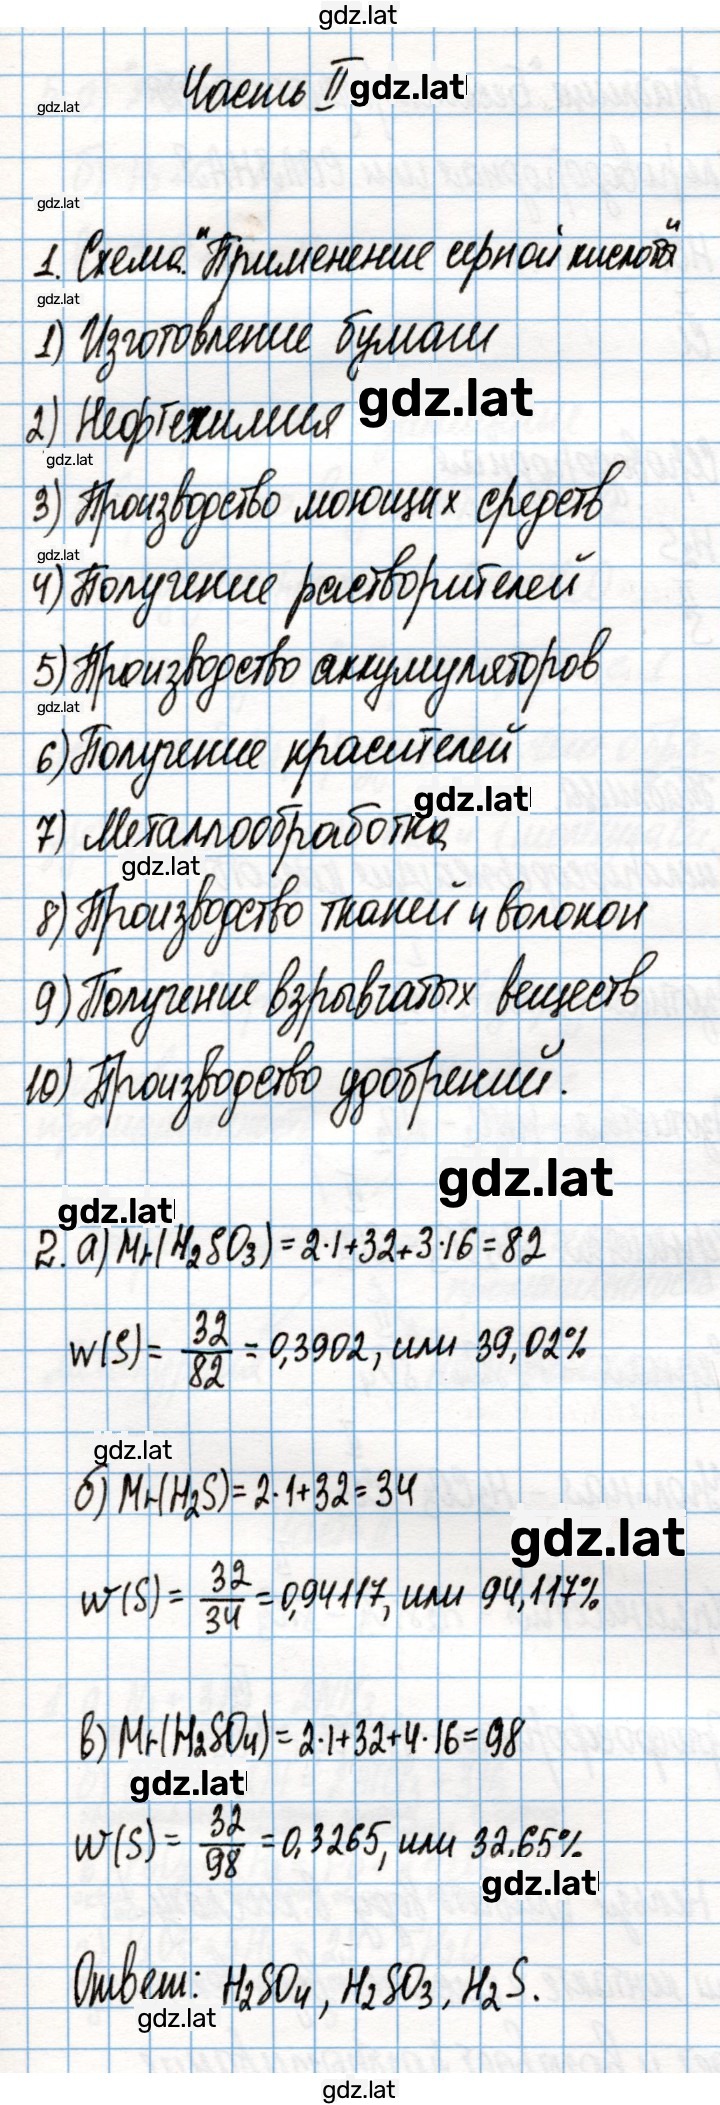 gdz.lat
Часть II gdz.lat
gdz.lat
gdz.lat
1. Схема. "Применение серной кислоты"
gdz.lat
1) Изготовление бумаги
gdz.lat
2) Нефтехимия
gdz.lat
3) Производство моющих средств
gdz.lat
4) Получение растворителей
5) Производство аккумуляторов
gdz.lat
6) Получение красителей
gdz.lat
7) Металлообработка
gdz.lat
8) Производство тканей и волокон
9) Получение взрывчатых веществ
10) Производство удобрений.
gdz.lat
gdz.lat
2. а) Mr(H₂SO₃) = 2·1+32+3·16 = 82
w(S) = 32/82 = 0,3902, или 39,02%
gdz.lat
б) Mr(H₂S) = 2·1+32 = 34
gdz.lat
w(S) = 32/34 = 0,94117, или 94,117%
в) Mr(H₂SO₄) = 2·1+32+4·16 = 98
gdz.lat
w(S) = 32/98 = 0,3265, или 32,65%
gdz.lat
Ответ: H₂SO₄, H₂SO₃, H₂S.
gdz.lat
gdz.lat